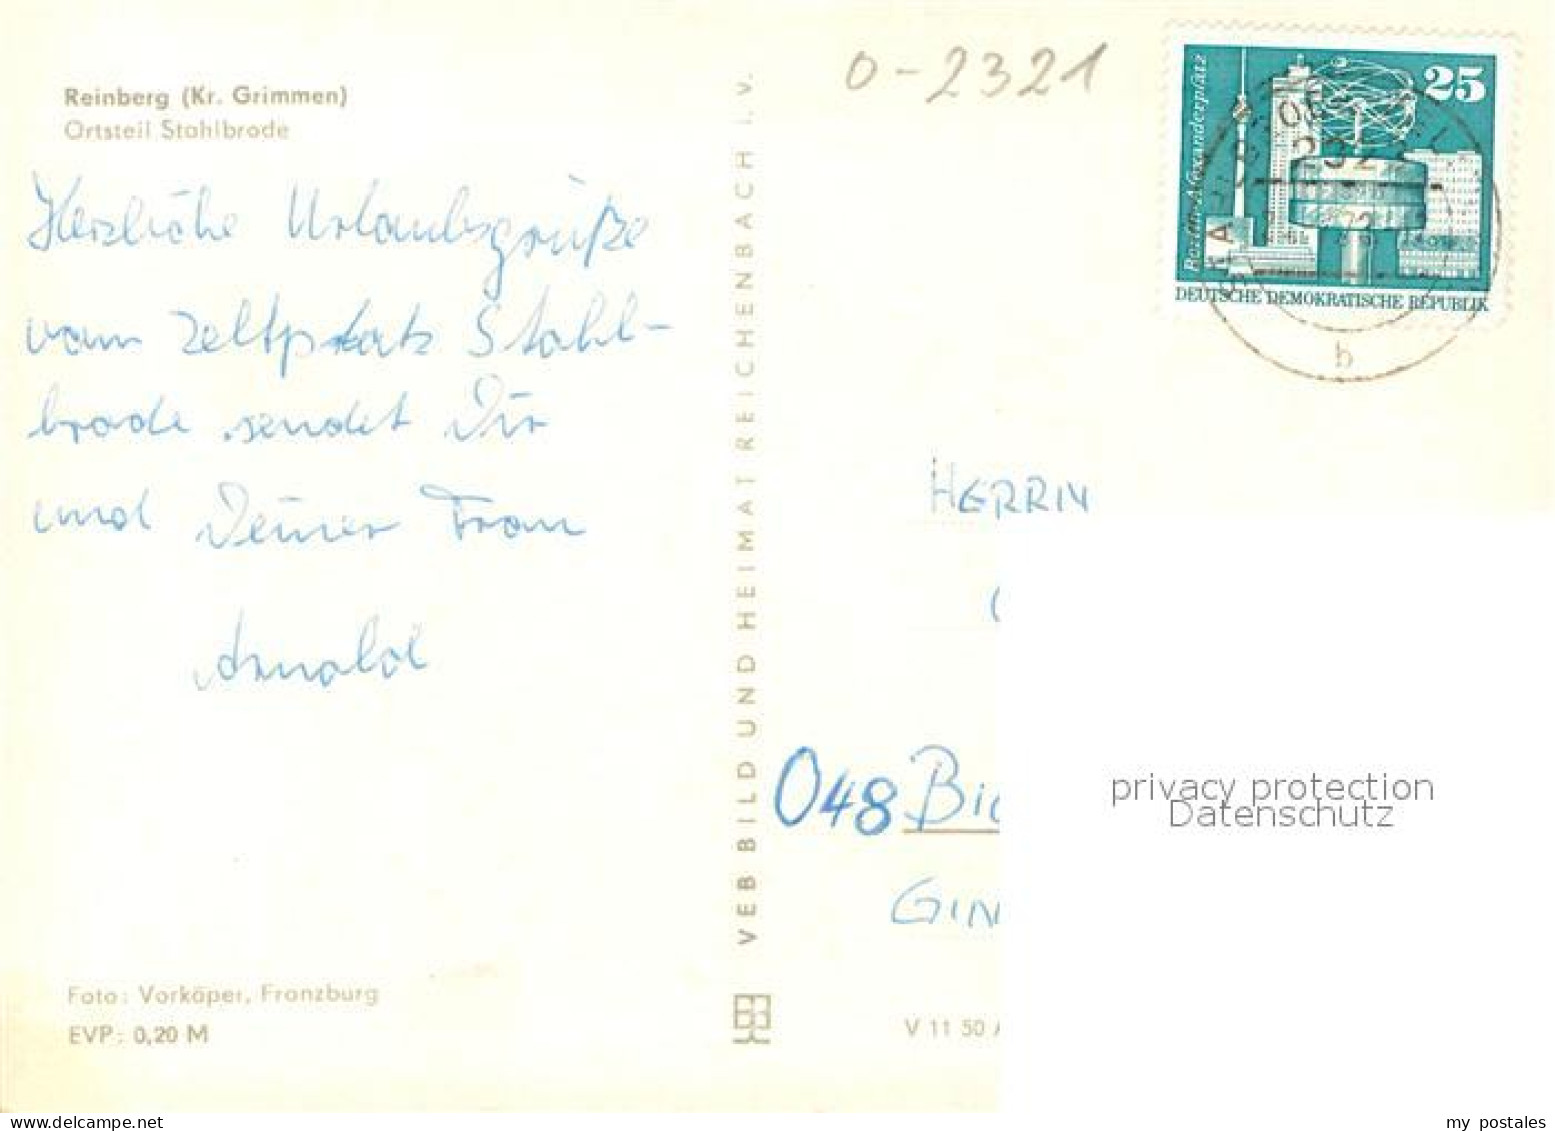 Reinberg (Kr. Grimmen)
Ortsteil Stahlbrode
Herzliche Urlaubsgrüße
vom Zeltplatz Stahl-
brode sendet Dir
und Deiner Frau
Arnold
Foto: Vorköper, Franzburg
EVP: 0,20 M
VEB BILD UND HEIMAT REICHENBACH i. V.
0-2321
25
Berlin-Alexanderplatz
DEUTSCHE DEMOKRATISCHE REPUBLIK
b
HERRN
048 Bi
GIN
V 11 50 A
privacy protection
Datenschutz
my postales